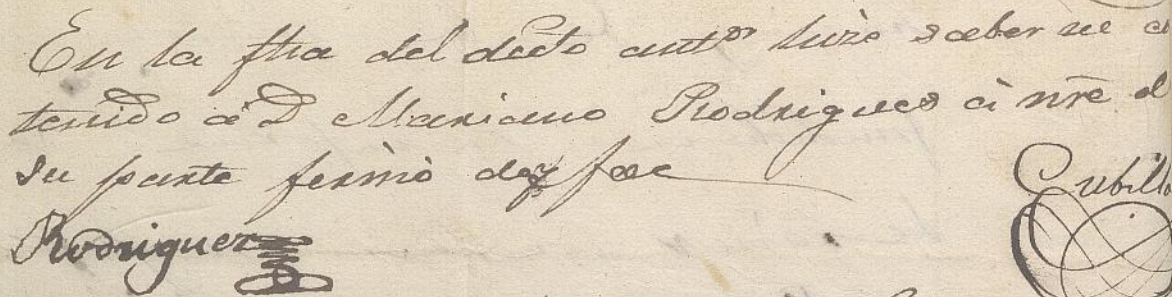 En la fha del decto antor hize saber su co
tenido á D Mariano Rodrigues á nre d
su parte firmó doy fee
Cubillo
Rodriguez